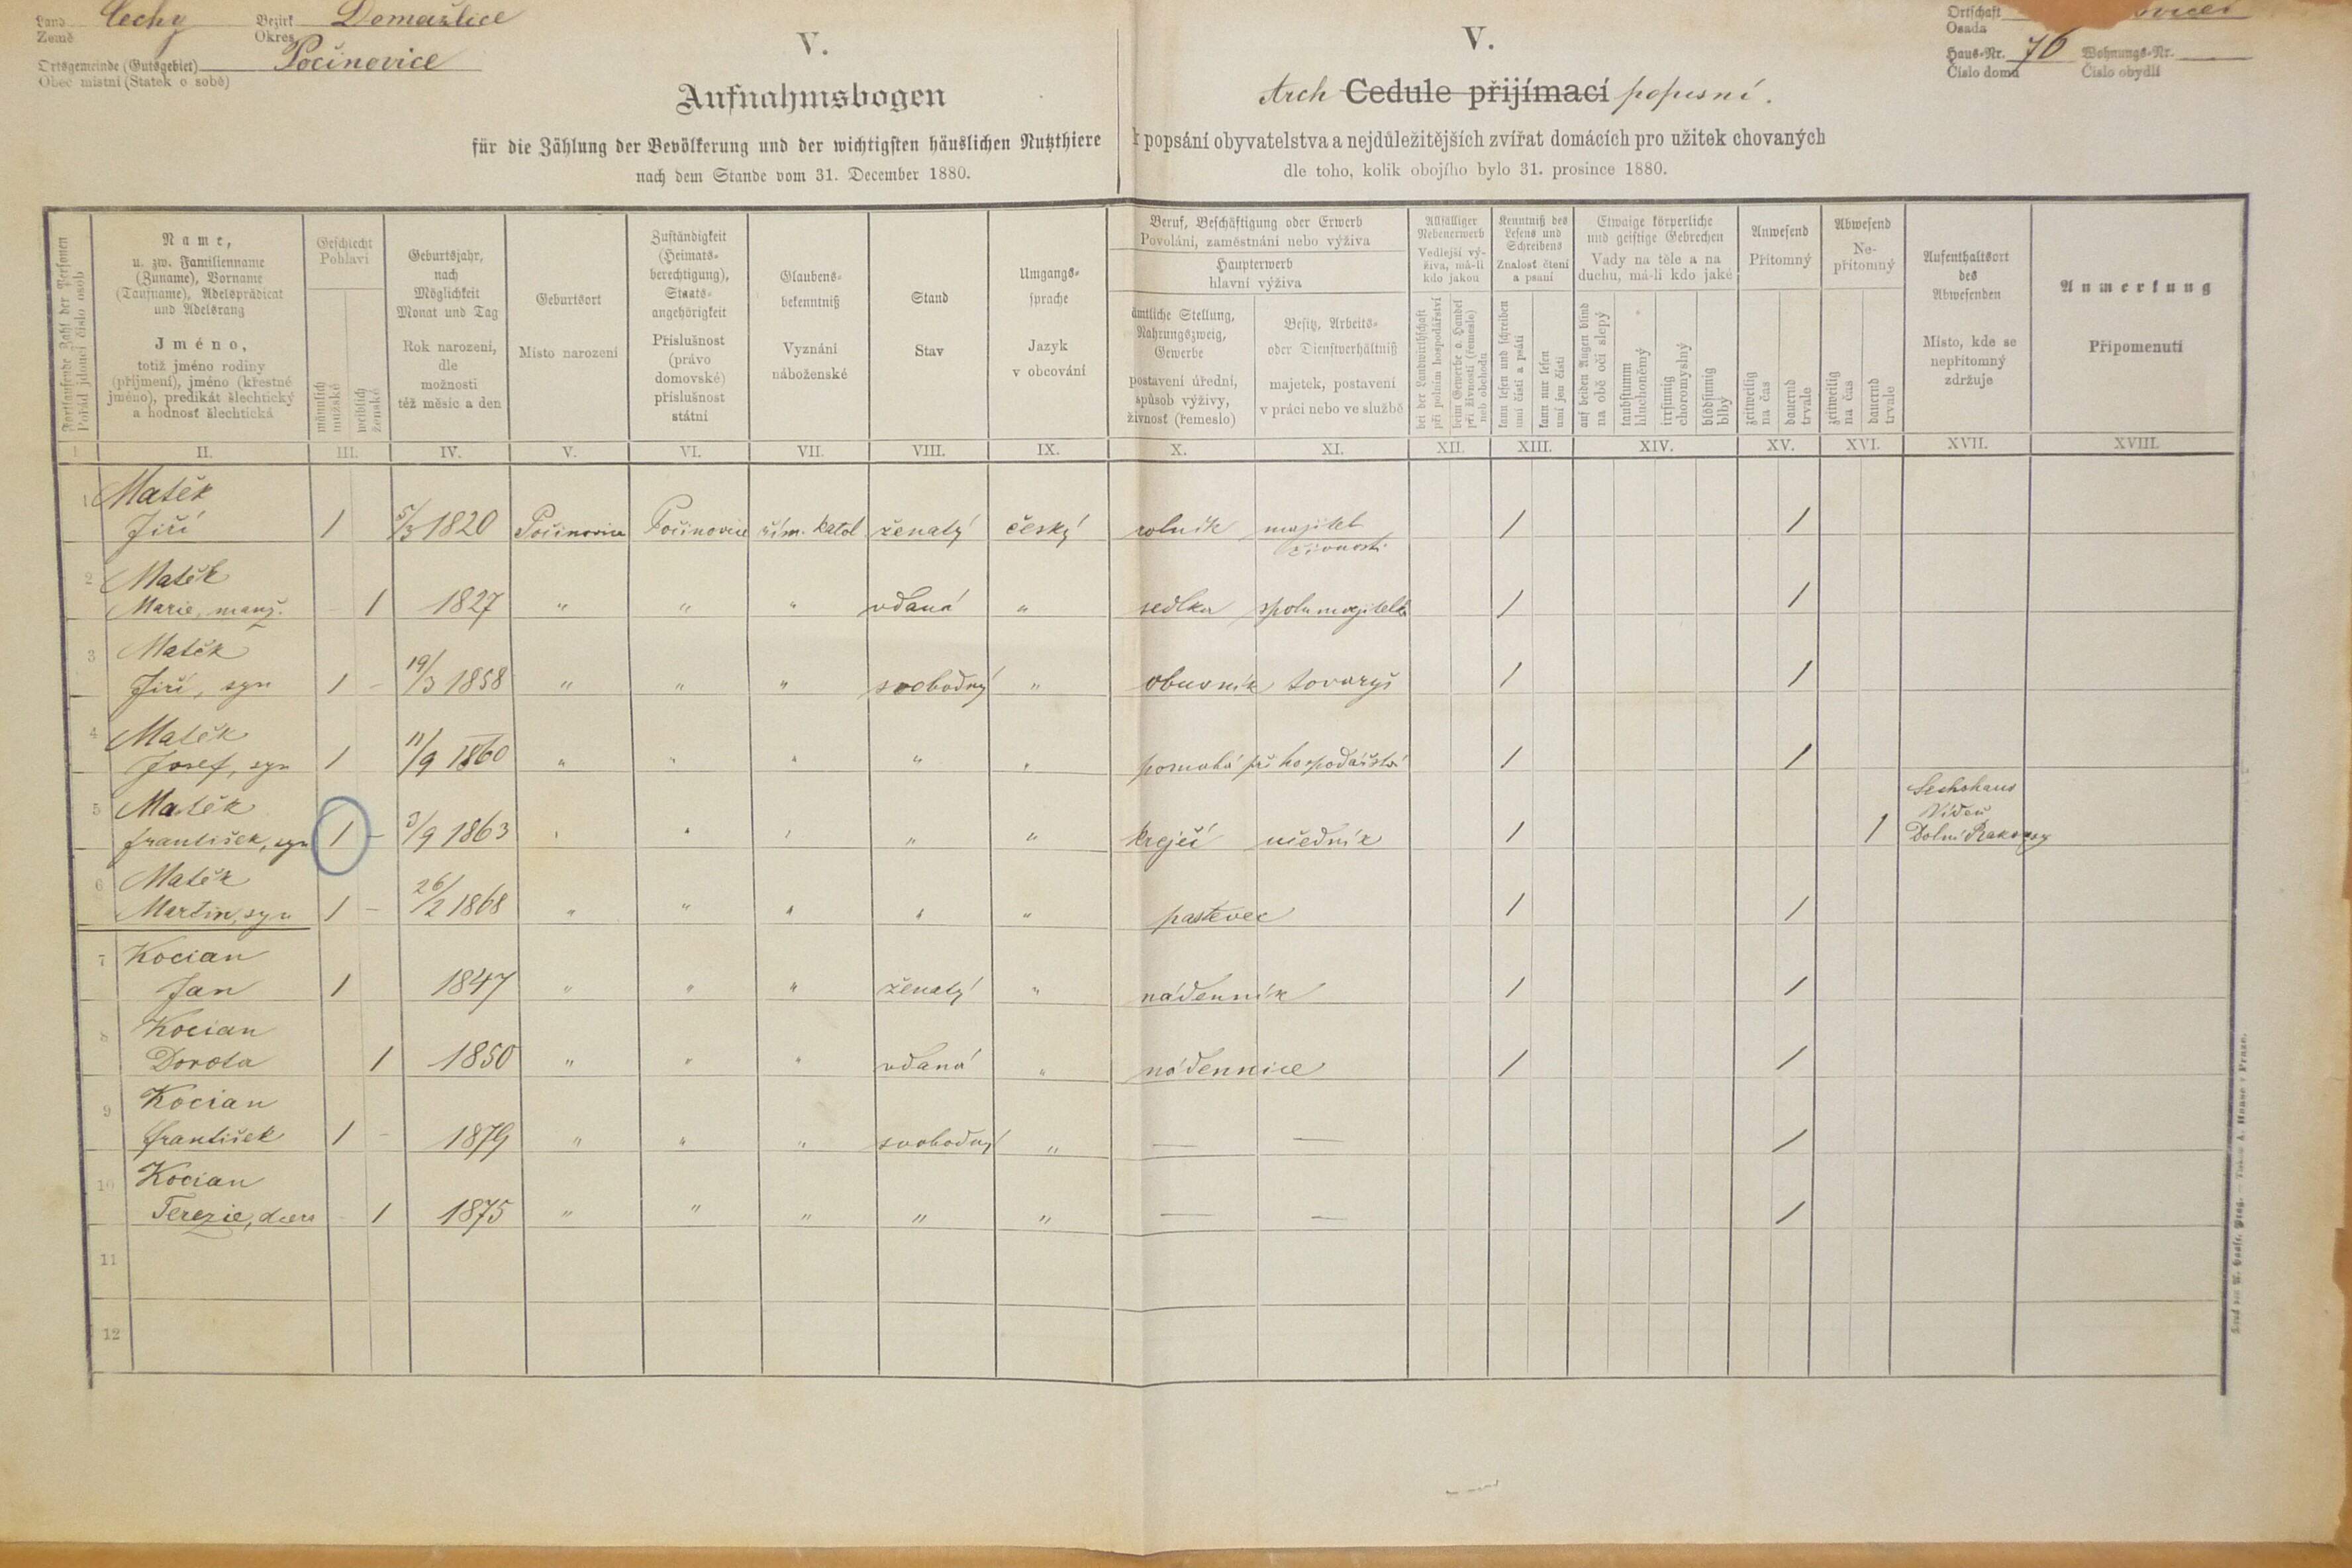 Land Čechy Bezirk Domažlice
Země Okres
Ortsgemeinde (Gutsgebiet) Počinovice
Obec místní (Statek o sobě)
V.
Aufnahmsbogen
für die Zählung der Bevölkerung und der wichtigsten häuslichen Nutzthiere
nach dem Stande vom 31. December 1880.
V.
Arch Cedule přijímací popisní.
k popsání obyvatelstva a nejdůležitějších zvířat domácích pro užitek chovaných
dle toho, kolik obojího bylo 31. prosince 1880.
Ortschaft
Osada
Haus-Nr. 76 Wohnungs-Nr.
Číslo domu Číslo obydlí
Fortlaufende Zahl der Personen
Pořád jdoucí číslo osob
Name,
u. zw. Familienname
(Zuname), Vorname
(Taufname), Adelsprädicat
und Adelsrang
Jméno,
totiž jméno rodiny
(příjmení), jméno (křestné
jméno), predikát šlechtický
a hodnost šlechtická
Geschlecht
Pohlaví
männlich
mužské
weiblich
ženské
Geburtsjahr,
nach
Möglichkeit
Monat und Tag
Rok narození,
dle
možnosti
též měsíc a den
Geburtsort
Místo narození
Zuständigkeit
(Heimats-
berechtigung),
Staats-
angehörigkeit
Příslušnost
(právo
domovské)
příslušnost
státní
Glaubens-
bekenntniß
Vyznání
náboženské
Stand
Stav
Umgangs-
sprache
Jazyk
v obcování
Beruf, Beschäftigung oder Erwerb
Povolání, zaměstnání nebo výživa
Haupterwerb
hlavní výživa
ämtliche Stellung,
Nahrungszweig,
Gewerbe
postavení úřední,
spůsob výživy,
živnost (řemeslo)
Besitz, Arbeits-
oder Dienstverhältniß
majetek, postavení
v práci nebo ve službě
Allfälliger
Nebenerwerb
Vedlejší vý-
živa, má-li
kdo jakou
bei der Landwirthschaft
při polním hospodářství
beim Gewerbe o. Handel
při živnosti (řemesle)
neb obchodu
Kenntniß des
Lesens und
Schreibens
Znalost čtení
a psaní
kann lesen und schreiben
umí čísti a psáti
kann nur lesen
umí jen čísti
Etwaige körperliche
und geistige Gebrechen
Vady na těle a na
duchu, má-li kdo jaké
auf beiden Augen blind
na obě oči slepý
taubstumm
hluchoněmý
irrsinnig
choromyslný
blödsinnig
blbý
Anwesend
Přítomný
zeitweilig
na čas
dauernd
trvale
Abwesend
Ne-
přítomný
zeitweilig
na čas
dauernd
trvale
Aufenthaltsort
des
Abwesenden
Místo, kde se
nepřítomný
zdržuje
Anmerkung
Připomenutí
I. II. III. IV. V. VI. VII. VIII. IX. X. XI. XII. XIII. XIV. XV. XVI. XVII. XVIII.
1 Matěk
Jiří 1 5/3 1820 Počinovice Počinovice řím. katol ženatý český rolník majitel / /
živnosti
2 Matěk
Marie, manž. - 1 1827 " " " vdaná " sedlka spolumajitelka / /
3 Matěk
Jiří, syn 1 - 19/3 1858 " " " svobodný " obuvník tovaryš / /
4 Matěk
Josef, syn 1 11/9 1860 " " " " " pomahá při hospodářství / /
5 Matěk
František, syn 1 - 3/9 1863 " " " " " krejčí učedník / 1
Sechshaus
Vídeň
Dolní Rakousy
6 Matěk
Martin, syn 1 - 26/2 1868 " " " " " pastevec / /
7 Kocian
Jan 1 1847 " " " ženatý " nádenník / /
8 Kocian
Dorota 1 1850 " " " vdaná " nádennice / /
9 Kocian
František 1 - 1879 " " " svobodný " — — /
10 Kocian
Terezie, dcera - 1 1875 " " " " " — — /
11
12